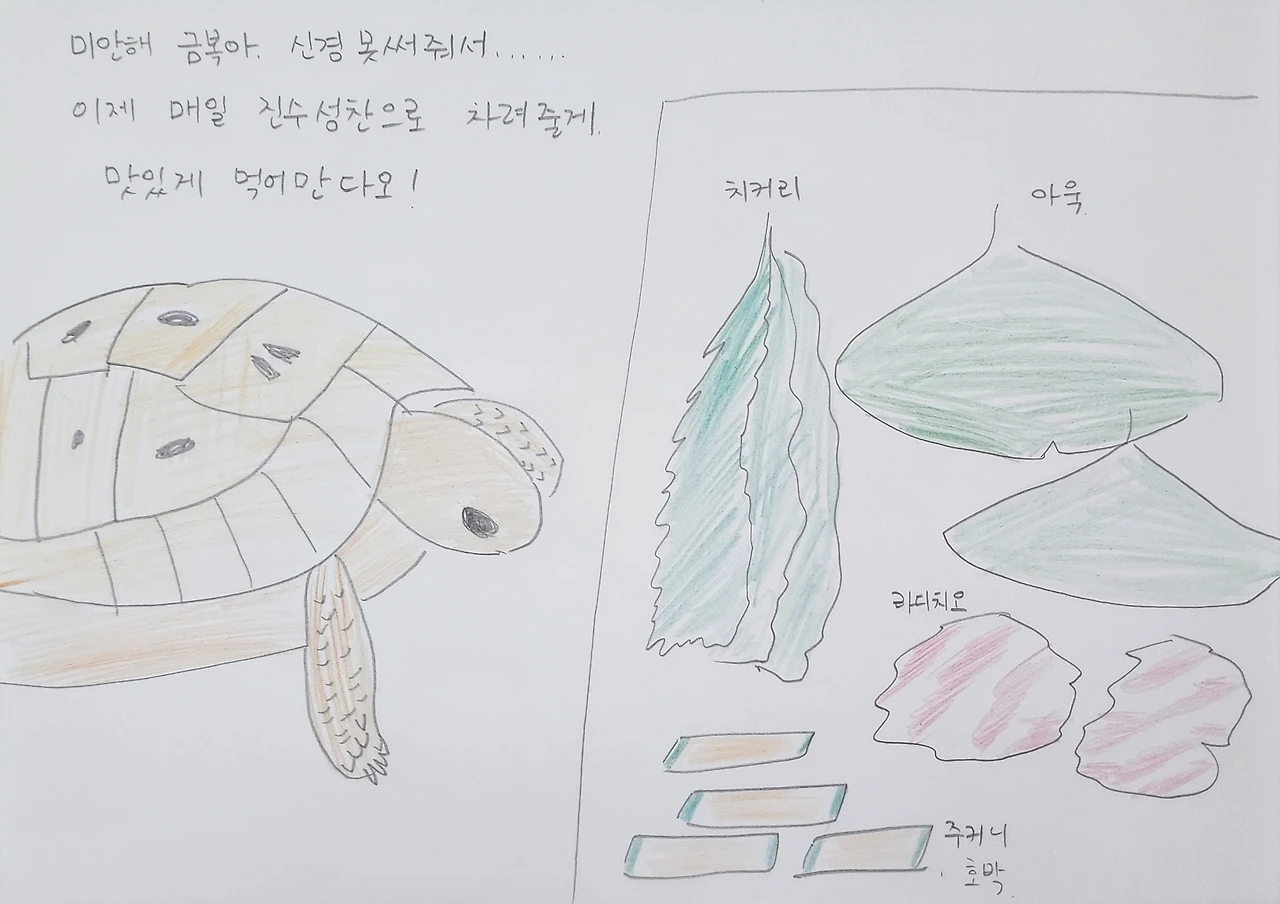 미안해 금복아. 신경 못써줘서......
이제 매일 진수성찬으로 차려줄게.
맛있게 먹어만 다오!
치커리
아욱
라디치오
주커니
호박